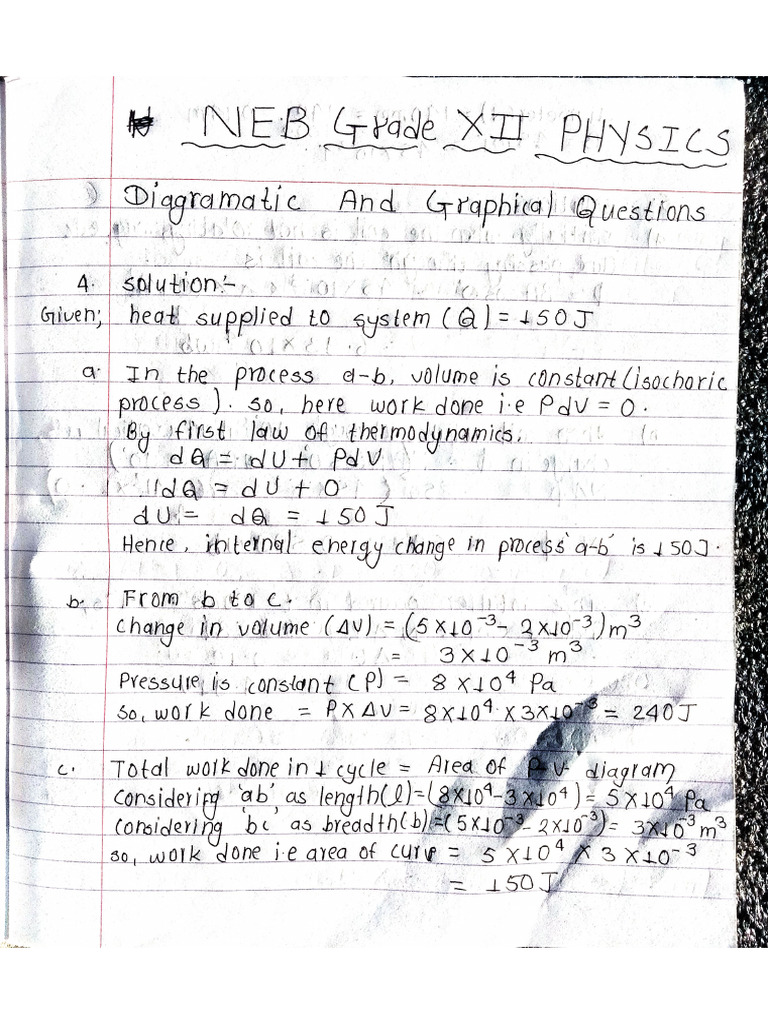 NEB Grade XII PHYSICS
Diagramatic And Graphical Questions
4. solution:-
Given; heat supplied to system (Q) = 150 J
a. In the process a-b, volume is constant (isochoric
process). so, here work done i.e PdV = 0.
By first law of thermodynamics,
dQ = dU + PdV
dQ = dU + 0
dU = dQ = 150 J
Hence, internal energy change in process 'a-b' is 150J.
b. From b to c.
change in volume (ΔV) = (5×10⁻³ - 2×10⁻³)m³
= 3×10⁻³ m³
Pressure is constant (P) = 8×10⁴ Pa
so, work done = P×ΔV = 8×10⁴ × 3×10⁻³ = 240J
c. Total work done in 1 cycle = Area of P-V diagram
Considering 'ab' as length(l) = (8×10⁴-3×10⁴) = 5×10⁴ Pa
Considering 'bc' as breadth(b) = (5×10⁻³ - 2×10⁻³) = 3×10⁻³ m³
so, work done i.e area of curve = 5×10⁴ × 3×10⁻³
= 150 J